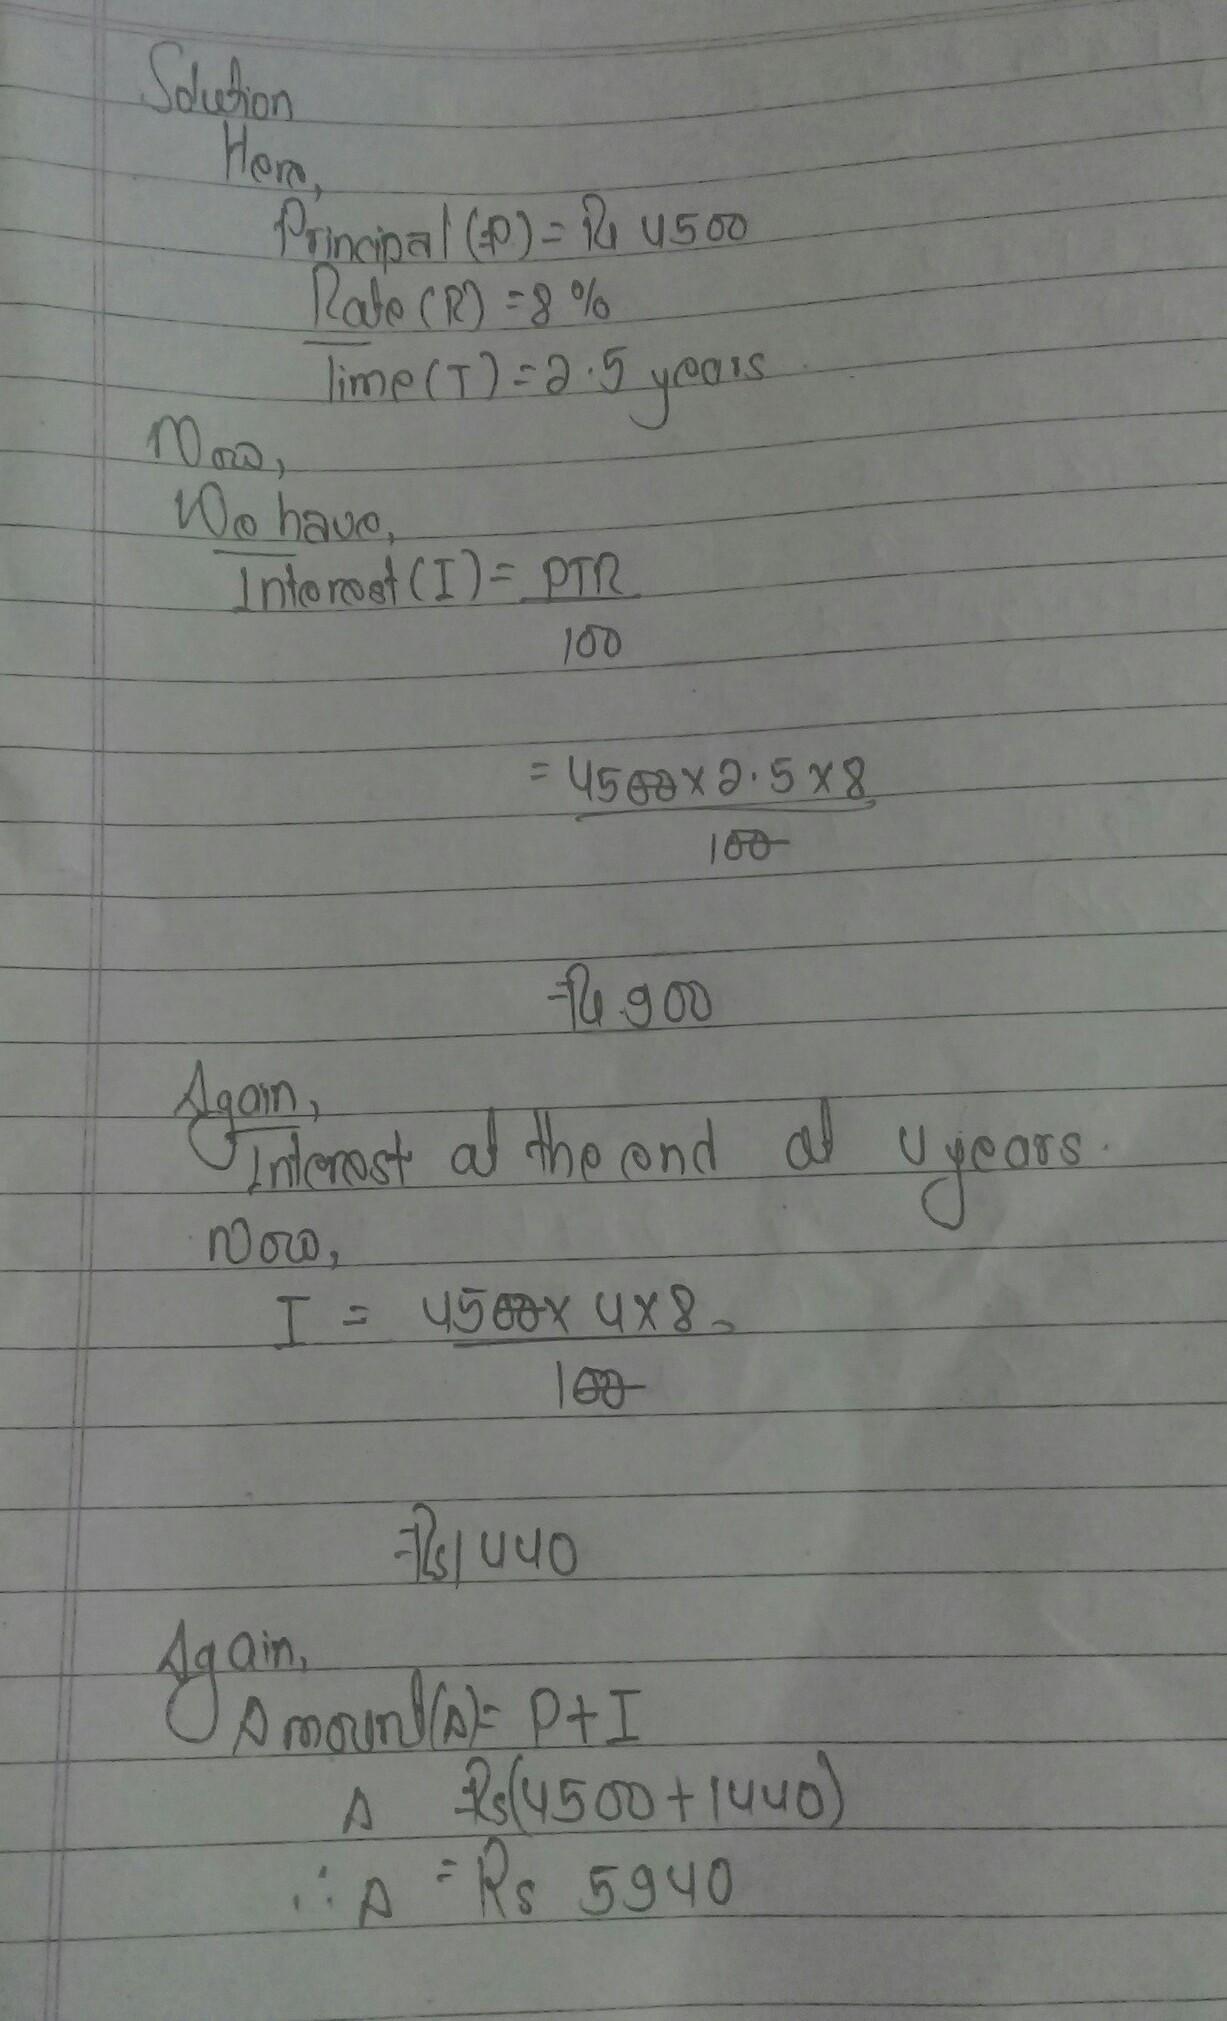 Solution
Here,
Principal (P) = Rs 4500
Rate (R) = 8 %
Time (T) = 2.5 years
Now,
We have,
Interest (I) = PTR
100
= 4500 × 2.5 × 8
100
= Rs 900
Again,
Interest at the end at 4 years.
Now,
I = 4500 × 4 × 8
100
= Rs 1440
Again,
Amount (A) = P + I
A = Rs (4500 + 1440)
∴ A = Rs 5940